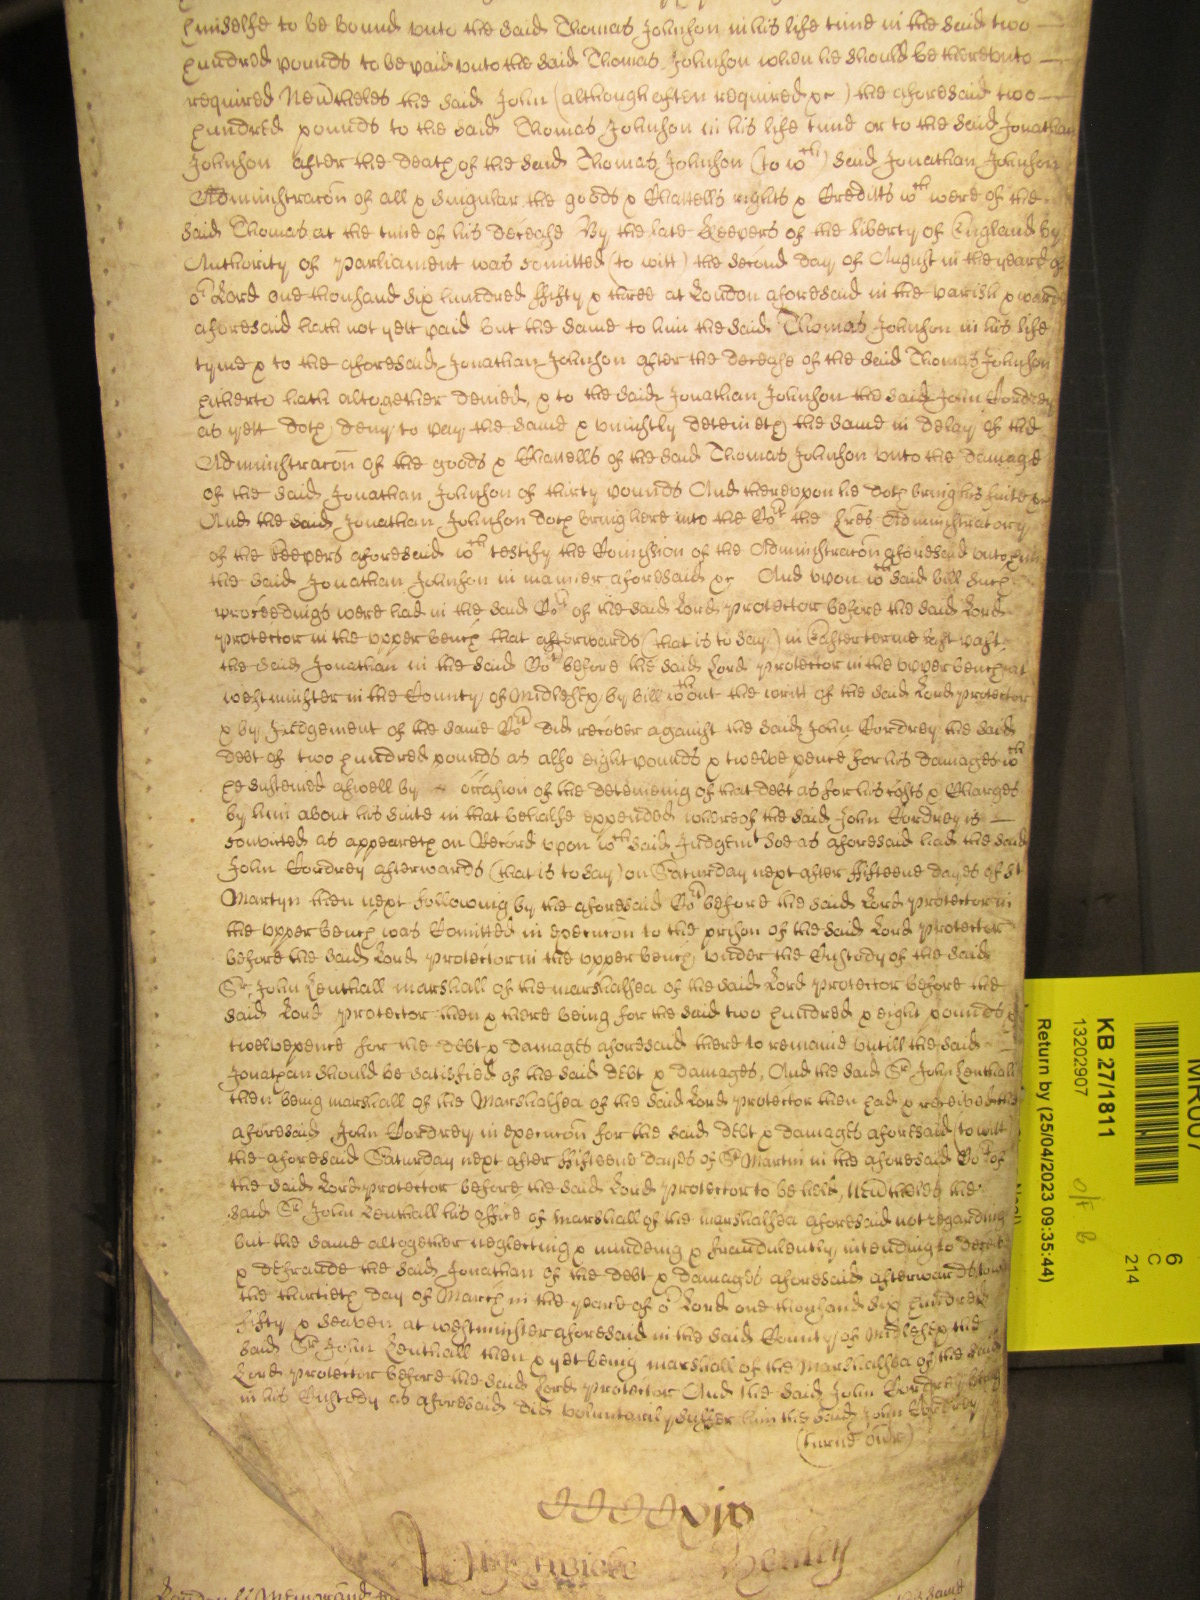 himselfe to be bound unto the said Thomas Johnson in his life time in the said two
hundred pounds to be paid unto the said Thomas Johnson when he should be thereunto
required Nev̄theles the said John (although often required &c) the aforesaid two
hundred pounds to the said Thomas Johnson in his life time or to the said Jonathan
Johnson after the death of the said Thomas Johnson (to wch said Jonathan Johnson
Administracōn of all & singular the goods & Chattells rights & Creditts wch were of the
said Thomas at the time of his decease By the late Keepers of the liberty of England by
Authority of Parliament was comitted (to witt) the second day of August in the yeare of
or Lord one thousand six hundred fifty & three at London aforesaid in the parish & ward
aforesaid hath not yett paid but the same to him the said Thomas Johnson in his life
tyme & to the aforesaid Jonathan Johnson after the decease of the said Thomas Johnson
hitherto hath altogether denied, & to the said Jonathan Johnson the said John Cordrey
as yett doth deny to pay the same & uniustly deteineth the same in delay of the
Administracōn of the goods & Chattells of the said Thomas Johnson unto the damage
of the said Jonathan Johnson of thirty pounds And thereupon he doth bring his suite &c
And the said Jonathan Johnson doth bring here into the Cort the Lres Administratory
of the keepers aforesaid wch testify the Comission of the Administracōn aforesaid unto him
the said Jonathan Johnson in manner aforesaid &c And upon wch said bill such
proceedings were had in the said Cort of the said Lord Protector before the said Lord
Protector in the upper bench that afterwards (that is to say) in Easter terme last past
the said Jonathan in the said Cort before the said Lord Protector in the upper bench at
westminster in the County of Middlesex by bill wthout the writt of the said Lord Protector
& by Judgement of the same Cort did recover against the said John Cordrey the said
debt of two hundred pounds as also eight pounds & twelve pence for his damages wch
he susteined aswell by occasion of the deteineing of that debt as for his costs & Charges
by him about his suite in that behalfe expended whereof the said John Cordrey is
convicted as appeareth on Record upon wch said Judgemt soe as aforesaid had the said
John Cordrey afterwards (that is to say) on Saturday next after fifteene dayes of St
Martyn then next following by the aforesaid Cort before the said Lord Protector in
the upper bench was Comitted in execucōn to the prison of the said Lord Protector
before the said Lord Protector in the upper bench under the Custody of the said
Sr John Lenthall marshall of the marshalsea of the said Lord Protector before the
said Lord Protector then & there being for the said two hundred & eight pounds &
twelvepence for the debt & damages aforesaid there to remaine untill the said
Jonathan should be satisfied of the said debt & damages, And the said Sr John Lenthall
then being marshall of the Marshalsea of the said Lord Protector then had & received the
aforesaid John Cordrey in execucōn for the said debt & damages aforesaid (to witt
the aforesaid Saturday next after fifteene dayes of St Martin in the aforesaid Cort of
the said Lord Protector before the said Lord Protector to be held, Nev̄theles the
said Sr John Lenthall his office of marshall of the marshalsea aforesaid not regarding
but the same altogether neglecting & mindeing & fraudulently intending to deceive
& defraude the said Jonathan of the debt & damages aforesaid afterwards to witt
the thirtieth day of March in the yeare of or Lord one thousand six hundred
fifty & seaven at westminster aforesaid in the said County of Middlesex the
said Sr John Lenthall then & yet being marshall of the Marshalsea of the said
Lord Protector before the said Lord Protector And the said John Cordrey
in his Custody as aforesaid did voluntarily suffer him the said John Cordrey
(turne over)
Henley
KB 27/1811
13202907
Return by (25/04/2023 09:35:44)
6
C
214